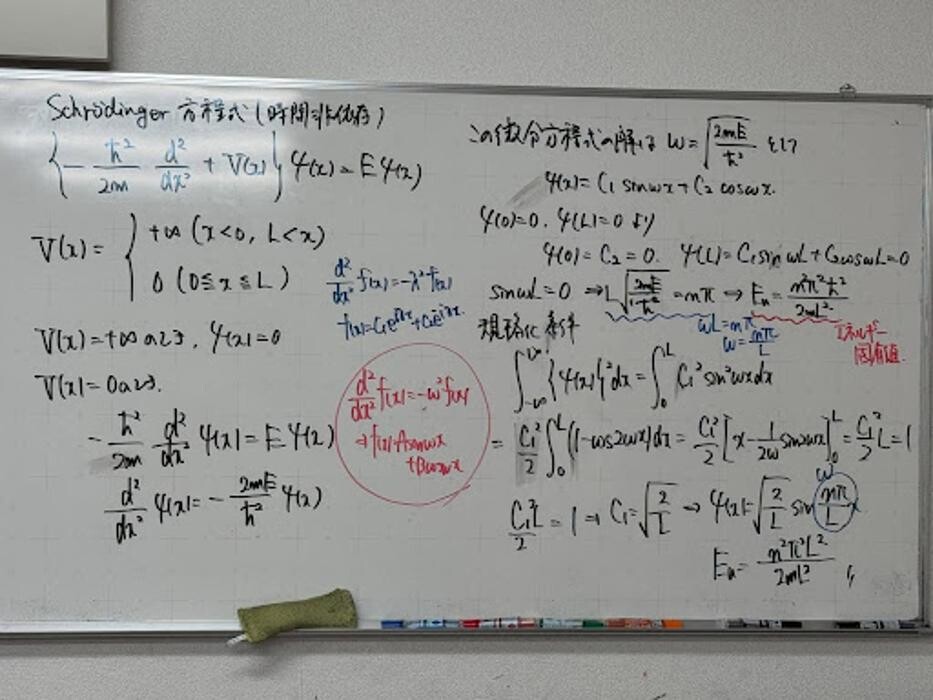 Schrödinger 方程式 (時間非依存)
{-ħ²/2m d²/dx² + V(x)} ψ(x) = E ψ(x)
V(x) = { +∞ (x<0, L<x)
0 (0≦x≦L)
d²/dx² f(x) = -λ² f(x)
V(x)=+∞ のとき, ψ(x)=0
V(x)=0のとき.
-ħ²/2m d²/dx² ψ(x) = E ψ(x)
d²/dx² ψ(x) = -2mE/ħ² ψ(x)
d²/dx² f(x) = -ω² f(x)
⇒ f(x)=Asinωx
+Bcosωx
この微分方程式の解は ω=√(2mE/ħ²) として
ψ(x) = C₁ sinωx + C₂ cosωx.
ψ(0)=0, ψ(L)=0 より
ψ(0) = C₂ = 0. ψ(L) = C₁sin ωL + C₂cosωL = 0
sinωL=0 ⇒ L√(2mE/ħ) = nπ → Eₙ = n²π²ħ²/2mL²
ωL=nπ
ω=nπ/L
エネルギー
固有値.
規格化条件
∫_{-∞}^{∞} {ψ(x)}² dx = ∫₀ᴸ C₁² sin²ωx dx
= C₁²/2 ∫₀ᴸ (1-cos2ωx) dx = C₁²/2 [x - 1/2ω sin2ωx]₀ᴸ = C₁²/2 L = 1
C₁²L/2 = 1 → C₁=√(2/L) → ψ(x)=√(2/L) sin nπ/L x
ω
Eₙ = n²π²L²/2mL² //